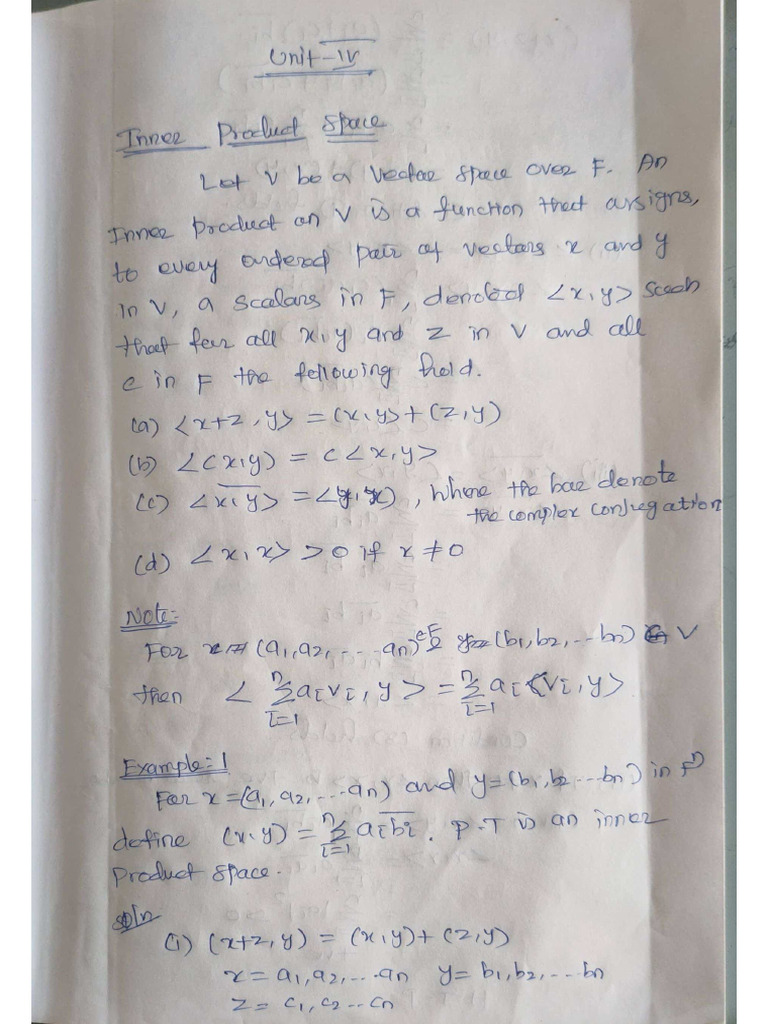 Unit-IV
Inner Product Space
Let V be a vector space over F. An
Inner product on V is a function that assigns,
to every ordered pair of vectors x and y
in V, a scalars in F, denoted <x,y> such
that for all x,y and z in V and all
c in F the following hold.
(a) <x+z,y> = (x,y) + (z,y)
(b) <cx,y) = c<x,y>
(c) <\overline{x,y}> = <y,x), where the bar denote
the complex conjugation
(d) <x,x> > 0 if x ≠ 0
Note:-
For (a1,a2,...an) (b1,b2,...bn) ∈ V
then < \sum_{i=1}^{n} aivi, y > = \sum_{i=1}^{n} ai <vi,y>
Example:-1
For x=(a1,a2,...an) and y=(b1,b2...bn) in F^n
define (x,y) = \sum_{i=1}^{n} ai\overline{bi}. P.T is an inner
product space.
soln
(i) (x+z,y) = (x,y)+(z,y)
x=a1,a2,...an y=b1,b2,...bn
z=c1,c2...cn